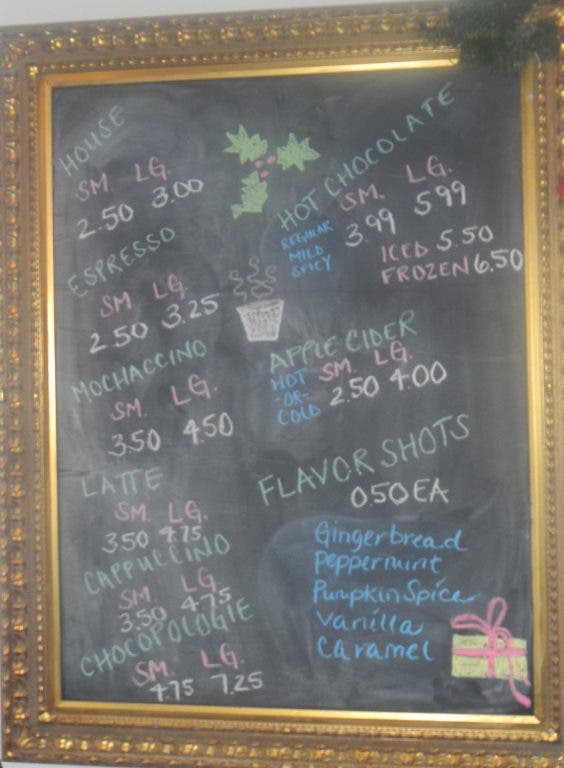 HOUSE
SM LG.
2.50 3.00
ESPRESSO
SM LG.
2.50 3.25
MOCHACCINO
SM. LG.
3.50 4.50
LATTE
SM LG.
3.50 4.75
CAPPUCCINO
SM. LG.
3.50 4.75
CHOCOPOLOGIE
SM. LG.
4.75 7.25
HOT CHOCOLATE
REGULAR
MILD
SPICY
SM. LG.
3.99 5.99
ICED 5.50
FROZEN 6.50
APPLE CIDER
HOT
-OR-
COLD
SM. LG.
2.50 4.00
FLAVOR SHOTS
0.50 EA
Gingerbread
Peppermint
Pumpkin Spice
Vanilla
Caramel